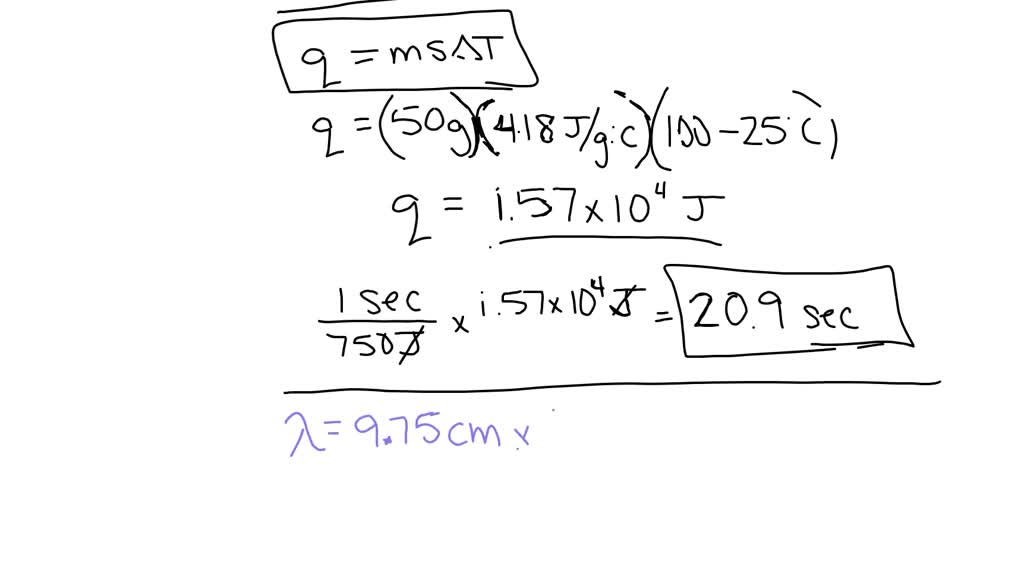 q = msΔT
q = (50g)(4.18 J/g·°C)(100 - 25°C)
q = 1.57 x 10⁴ J
1 sec / 750J x 1.57 x 10⁴ J = 20.9 sec
λ = 9.75 cm x